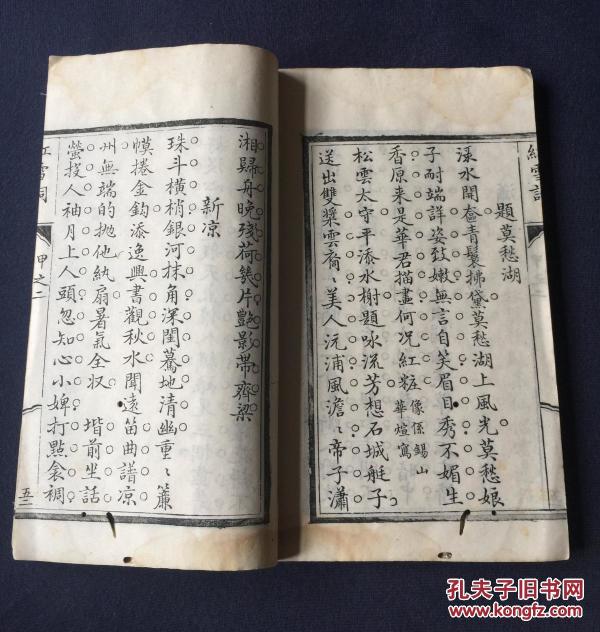 題莫愁湖
淥水開奩青鬟拂黛莫愁湖上風光莫愁娘
子耐端詳姿致嫩無言自笑眉目秀不媚生
香原来是華君描畫何况紅粧像係錫山華煊寫
松雲太守平添水榭題咏流芳想石城艇子
送出雙槳雲裔〻美人沅浦風澹〻帝子瀟
湘歸舟晚殘荷幾片艷影帶齊梁
新凉
珠斗橫梢銀河抹角深閨驀地清幽重〻簾
幙捲金鈎添逸興書觀秋水聞遠笛曲譜凉
州無端的抛他紈扇暑氣全収 堦前坐話
螢投人袖月上人頭忽知心小婢打點衾裯
紅雪詞
甲之二
五
孔夫子旧书网
www.kongfz.com